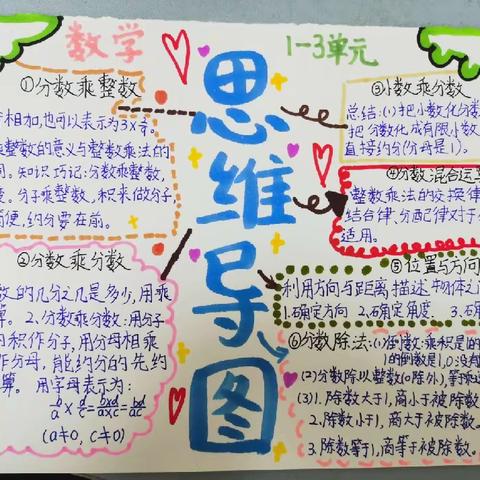 数学
1-3单元
思维导图
①分数乘整数
相加,也可以表示为3×
整数的意义与整数乘法的
同。知识巧记:分数乘整数,
变。分子乘整数,积来做分子,
简便,约分要在前。
②分数乘分数
数的几分之几是多少,用乘
算。2、分数乘分数:用分子
的积作分子,用分母相乘
作分母,能约分的先约
算。用字母表示为:
b/a×d/c=b×d/a×c=bd/ac
(a≠0, c≠0)
③小数乘分数
总结:(1)把小数化分数
把分数化成有限小数
直接约分(分母是1)。
④分数混合运算
整数乘法的交换律
结合律、分配律对于
适用。
⑤位置与方向
利用方向与距离描述物体之
1.确定方向 2.确定角度. 3.确
⑥分数除法:(1)倒数:乘积是1的
的倒数是1,0没有
(2)分数除以整数(0除外),等于
(3)1.除数大于1,商小于被除数
2.除数小于1,商大于被除数.
3.除数等于1,商等于被除数.